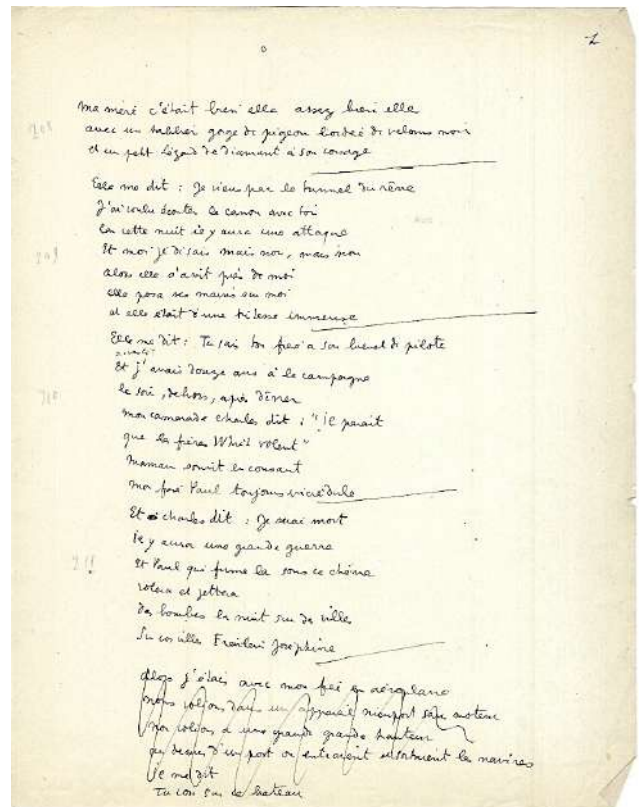 1
Ma mère c'était bien elle assez bien elle
avec un tablier gorge de pigeon bordée de velours noir
et un petit lézard de diamant à son corsage
Elle me dit : Je viens par le tunnel du rêve
J'ai voulu écouter le canon avec toi
Car cette nuit il y aura une attaque
Et moi je disais mais non, mais non
alors elle s'assit près de moi
elle posa ses mains sur moi
et elle était d'une tristesse immense
Elle me dit : Tu sais ton frère a son brevet de pilote
Et j'avais douze ans à la campagne
le soir, dehors, après dîner
mon camarade Charles dit : "il parait
que les frères Whrit volent"
Maman sourit en cousant
Mon frère Paul toujours incrédule
Et Charles dit : Je serai mort
il y aura une grande guerre
Et Paul qui fume là sous ce chêne
volera et jettera
des bombes la nuit sur des villes
Sur vos villes Fraülein Joséphine
Alors j'étais avec mon frère en aéroplane
nous volions dans un appareil nieuport sans moteur
nous volions à une grande grande hauteur
au dessus d'un port où entraient et sortaient les navires
il me dit
Tu vois sur ce bateau